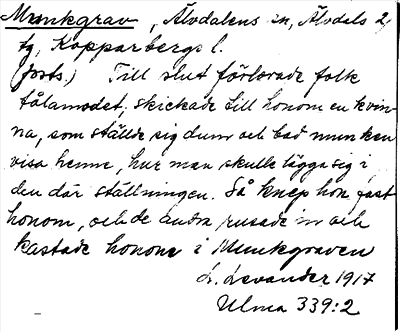 Munkgrav, Älvdalens sn, Älvdals
tg, Kopparbergs l.
(forts.) Till slut förlorade folk
tålamodet, skickade till honom en kvin-
na, som ställde sig dum och bad munken
visa henne, hur man skulle lägga sig i
den där ställningen. Så knep hon fast
honom, och de andra rusade in och
kastade honom i Munkgraven
L. Levander 1917
Ulma 339:2